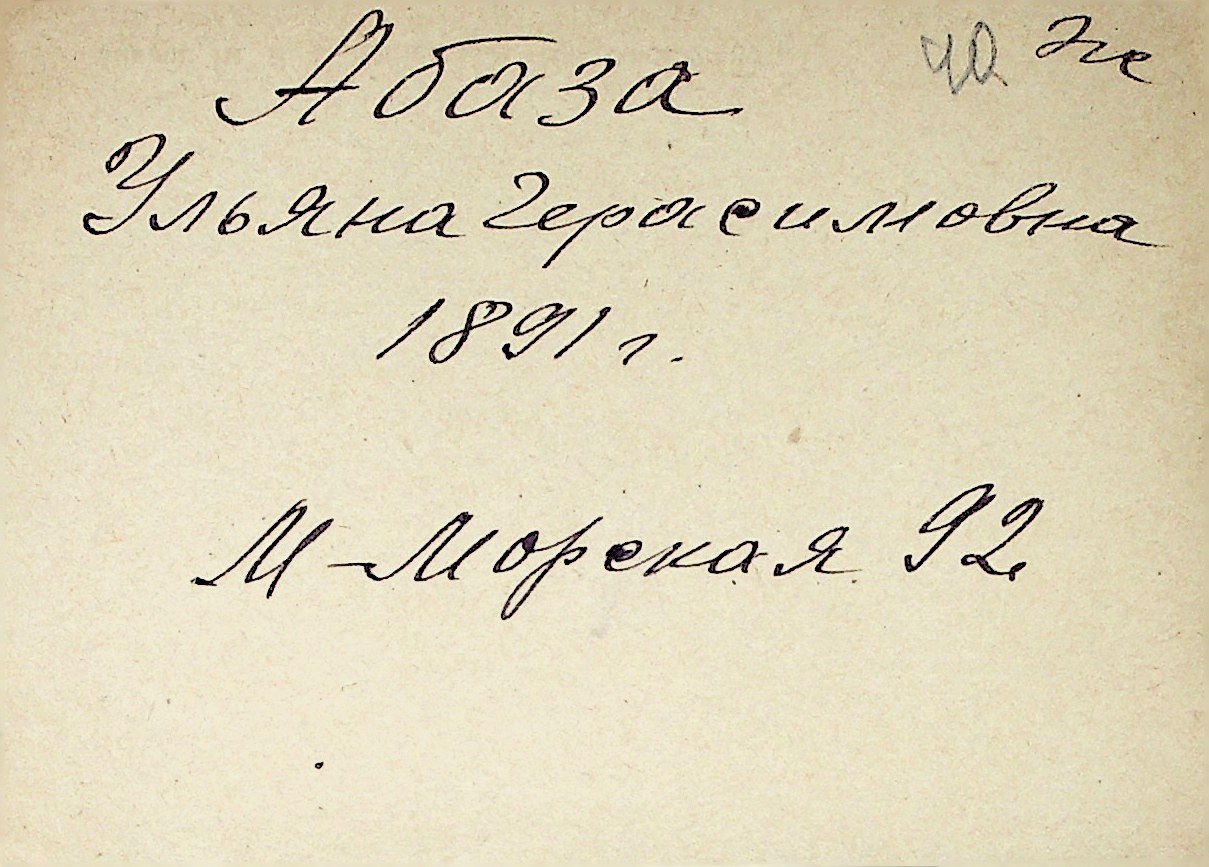 Абаза
Ульяна Герасимовна
1891 г.
М-Морская 92